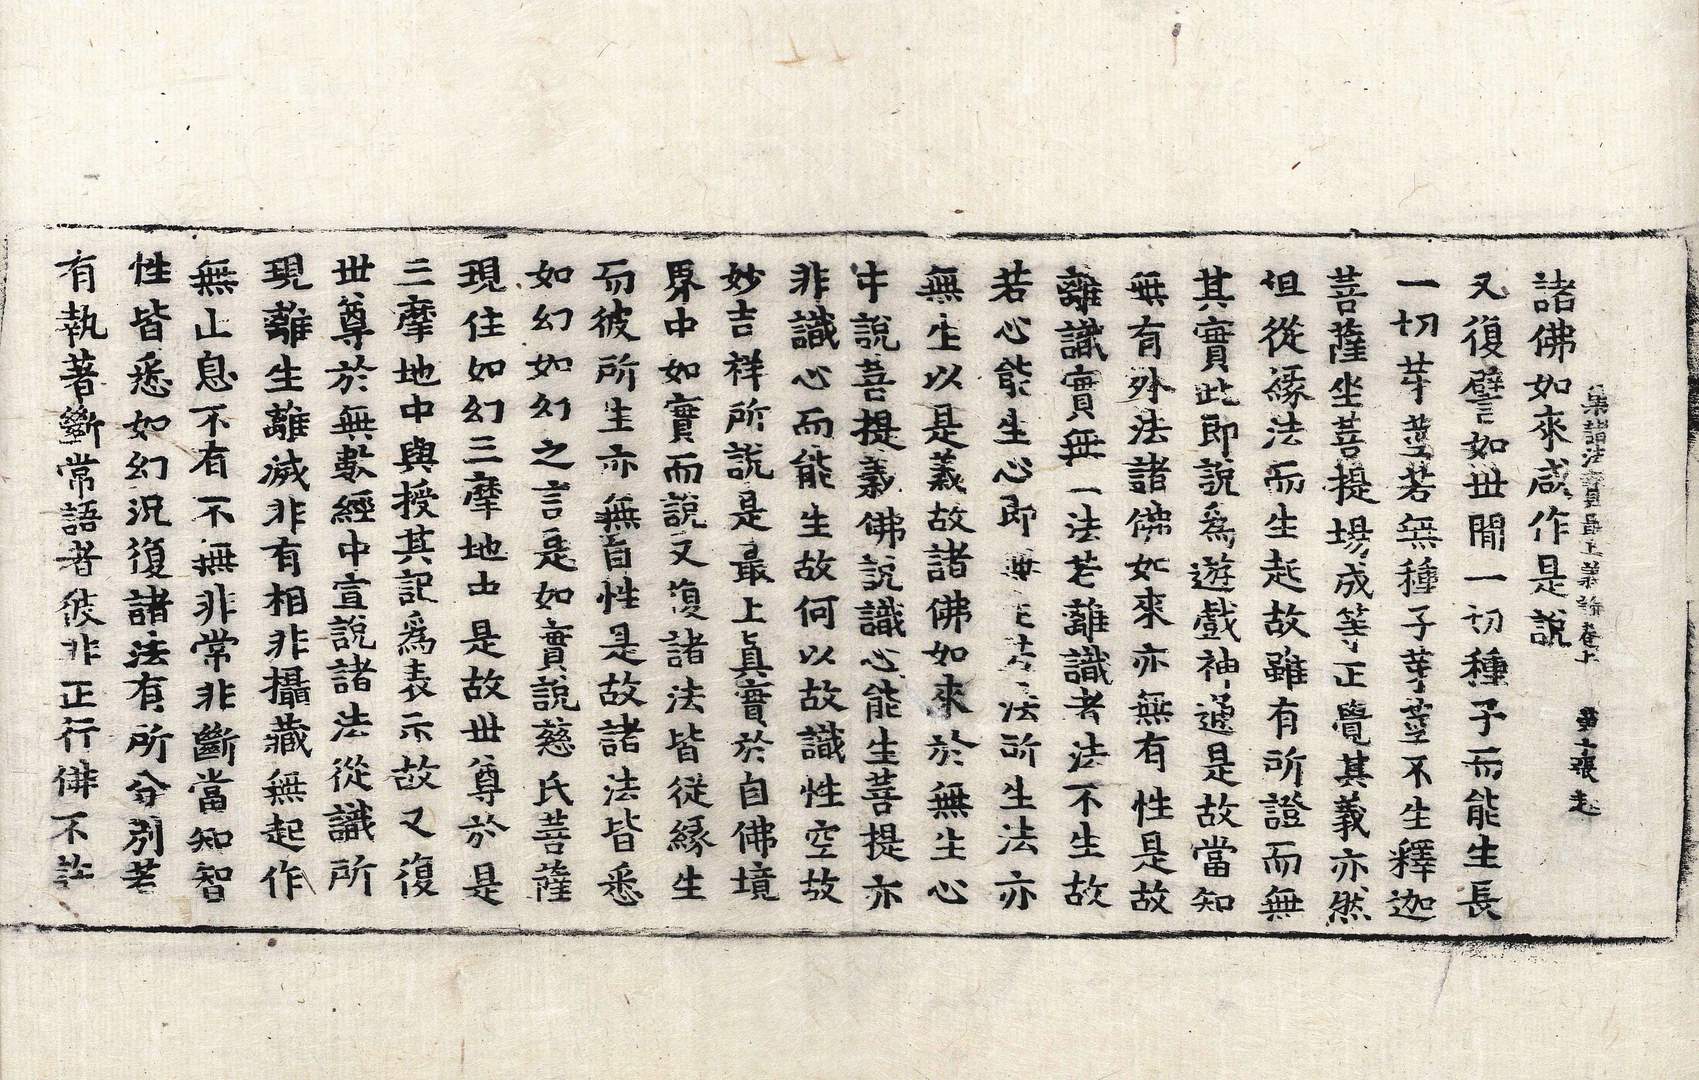 集諸法寶最上義論卷上 張 起
諸佛如來咸作是說
又復譬如世間一切種子而能生長
一切芽莖若無種子芽莖不生釋迦
菩薩坐菩提場成等正覺其義亦然
但從緣法而生起故雖有所證而無
其實此即說爲遊戲神通是故當知
無有外法諸佛如來亦無有性是故
離識實無一法若離識者法不生故
若心能生心即無法所生法亦
無生以是義故諸佛如來於無生心
中說菩提義佛說識心能生菩提亦
非識心而能生故何以故識性空故
妙吉祥所說是最上眞實於自佛境
界中如實而說又復諸法皆從緣生
而彼所生亦無自性是故諸法皆悉
如幻如幻之言是如實說慈氏菩薩
現住如幻三摩地中是故世尊於是
三摩地中與授其記爲表示故又復
世尊於無數經中宣說諸法從識所
現離生離滅非有相非攝藏無起作
無止息不有不無非常非斷當知智
性皆悉如幻況復諸法有所分別若
有執著斷常語者彼非正行佛不許